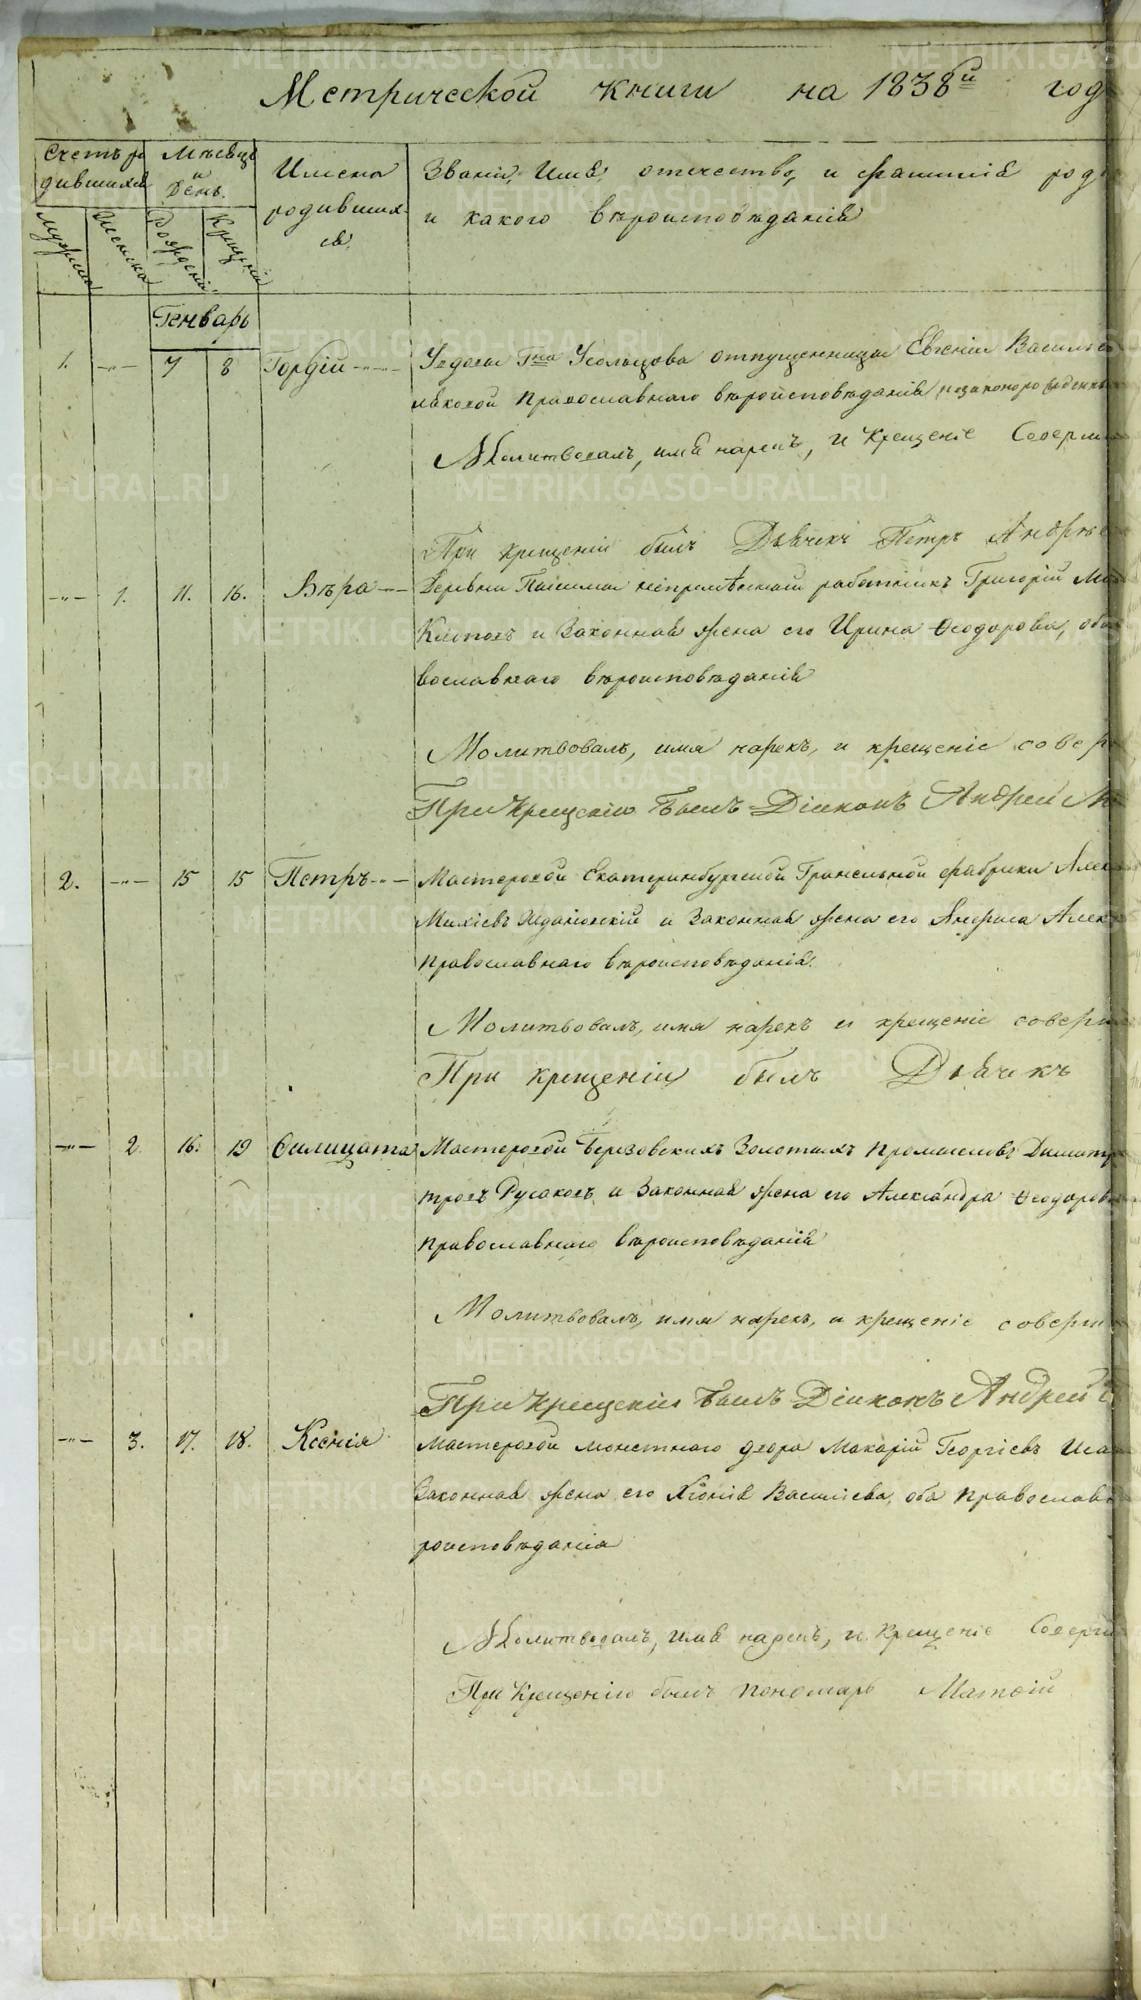 Метрической книги на 1838й год
Счетъ ро
дившихся
Мѣсяцъ
и
день.
Имена
родивших
ся.
Званіе, Имя, отчество, и фамилія род
и какого вѣроисповѣданія
Мужеска
Женска
Рожденія
Крещенія
Генварь
1. —„— 7 8 Гордій Гна Усольцова отпущенницы Евгеніи Василье
Православнаго вѣроисповѣданія, незаконорожденны
Молитвовалъ, имя нарекъ, и Крещеніе Соверши
При крещеніи былъ Дьячекъ Петръ Андрѣе
—„— 1. 11. 16. Вѣра Деревни непремѣннаго работникъ Григорій
и Законная жена его Ирина Ѳеодорова, оба
вославнаго вѣроисповѣданія
Молитвовалъ, имя нарекъ, и крещеніе совер
При Крещеніи былъ Діаконъ Андрей
2. —„— 15 15 Петръ Мастеровой Екатеринбургской Гранильной фабрики Алек
и Законная жена его Анфиса Алек
Православнаго вѣроисповѣданія.
Молитвовалъ, имя нарекъ и крещеніе соверш
При крещеніи былъ Дьячекъ
—„— 2 16. 19 Филицата Мастеровой Березовскихъ Золотыхъ промысловъ Димитр
тровъ Русаковъ, и Законная жена его Александра Ѳеодоров
Православнаго вѣроисповѣданія
Молитвовалъ, имя нарекъ, и крещеніе соверши
При Крещеніи былъ Діаконъ Андрей
—„— 3. 17. 18. Ксенія Мастеровой монетнаго двора Макарій Георгіевъ Иса
Законная жена его Хіонія Василіева, оба Православ
роисповѣданія
Молитвовалъ, имя нарекъ, и Крещеніе Соверш
При Крещеніи былъ пономарь Матѳій
METRIKI.GASO-URAL.RU